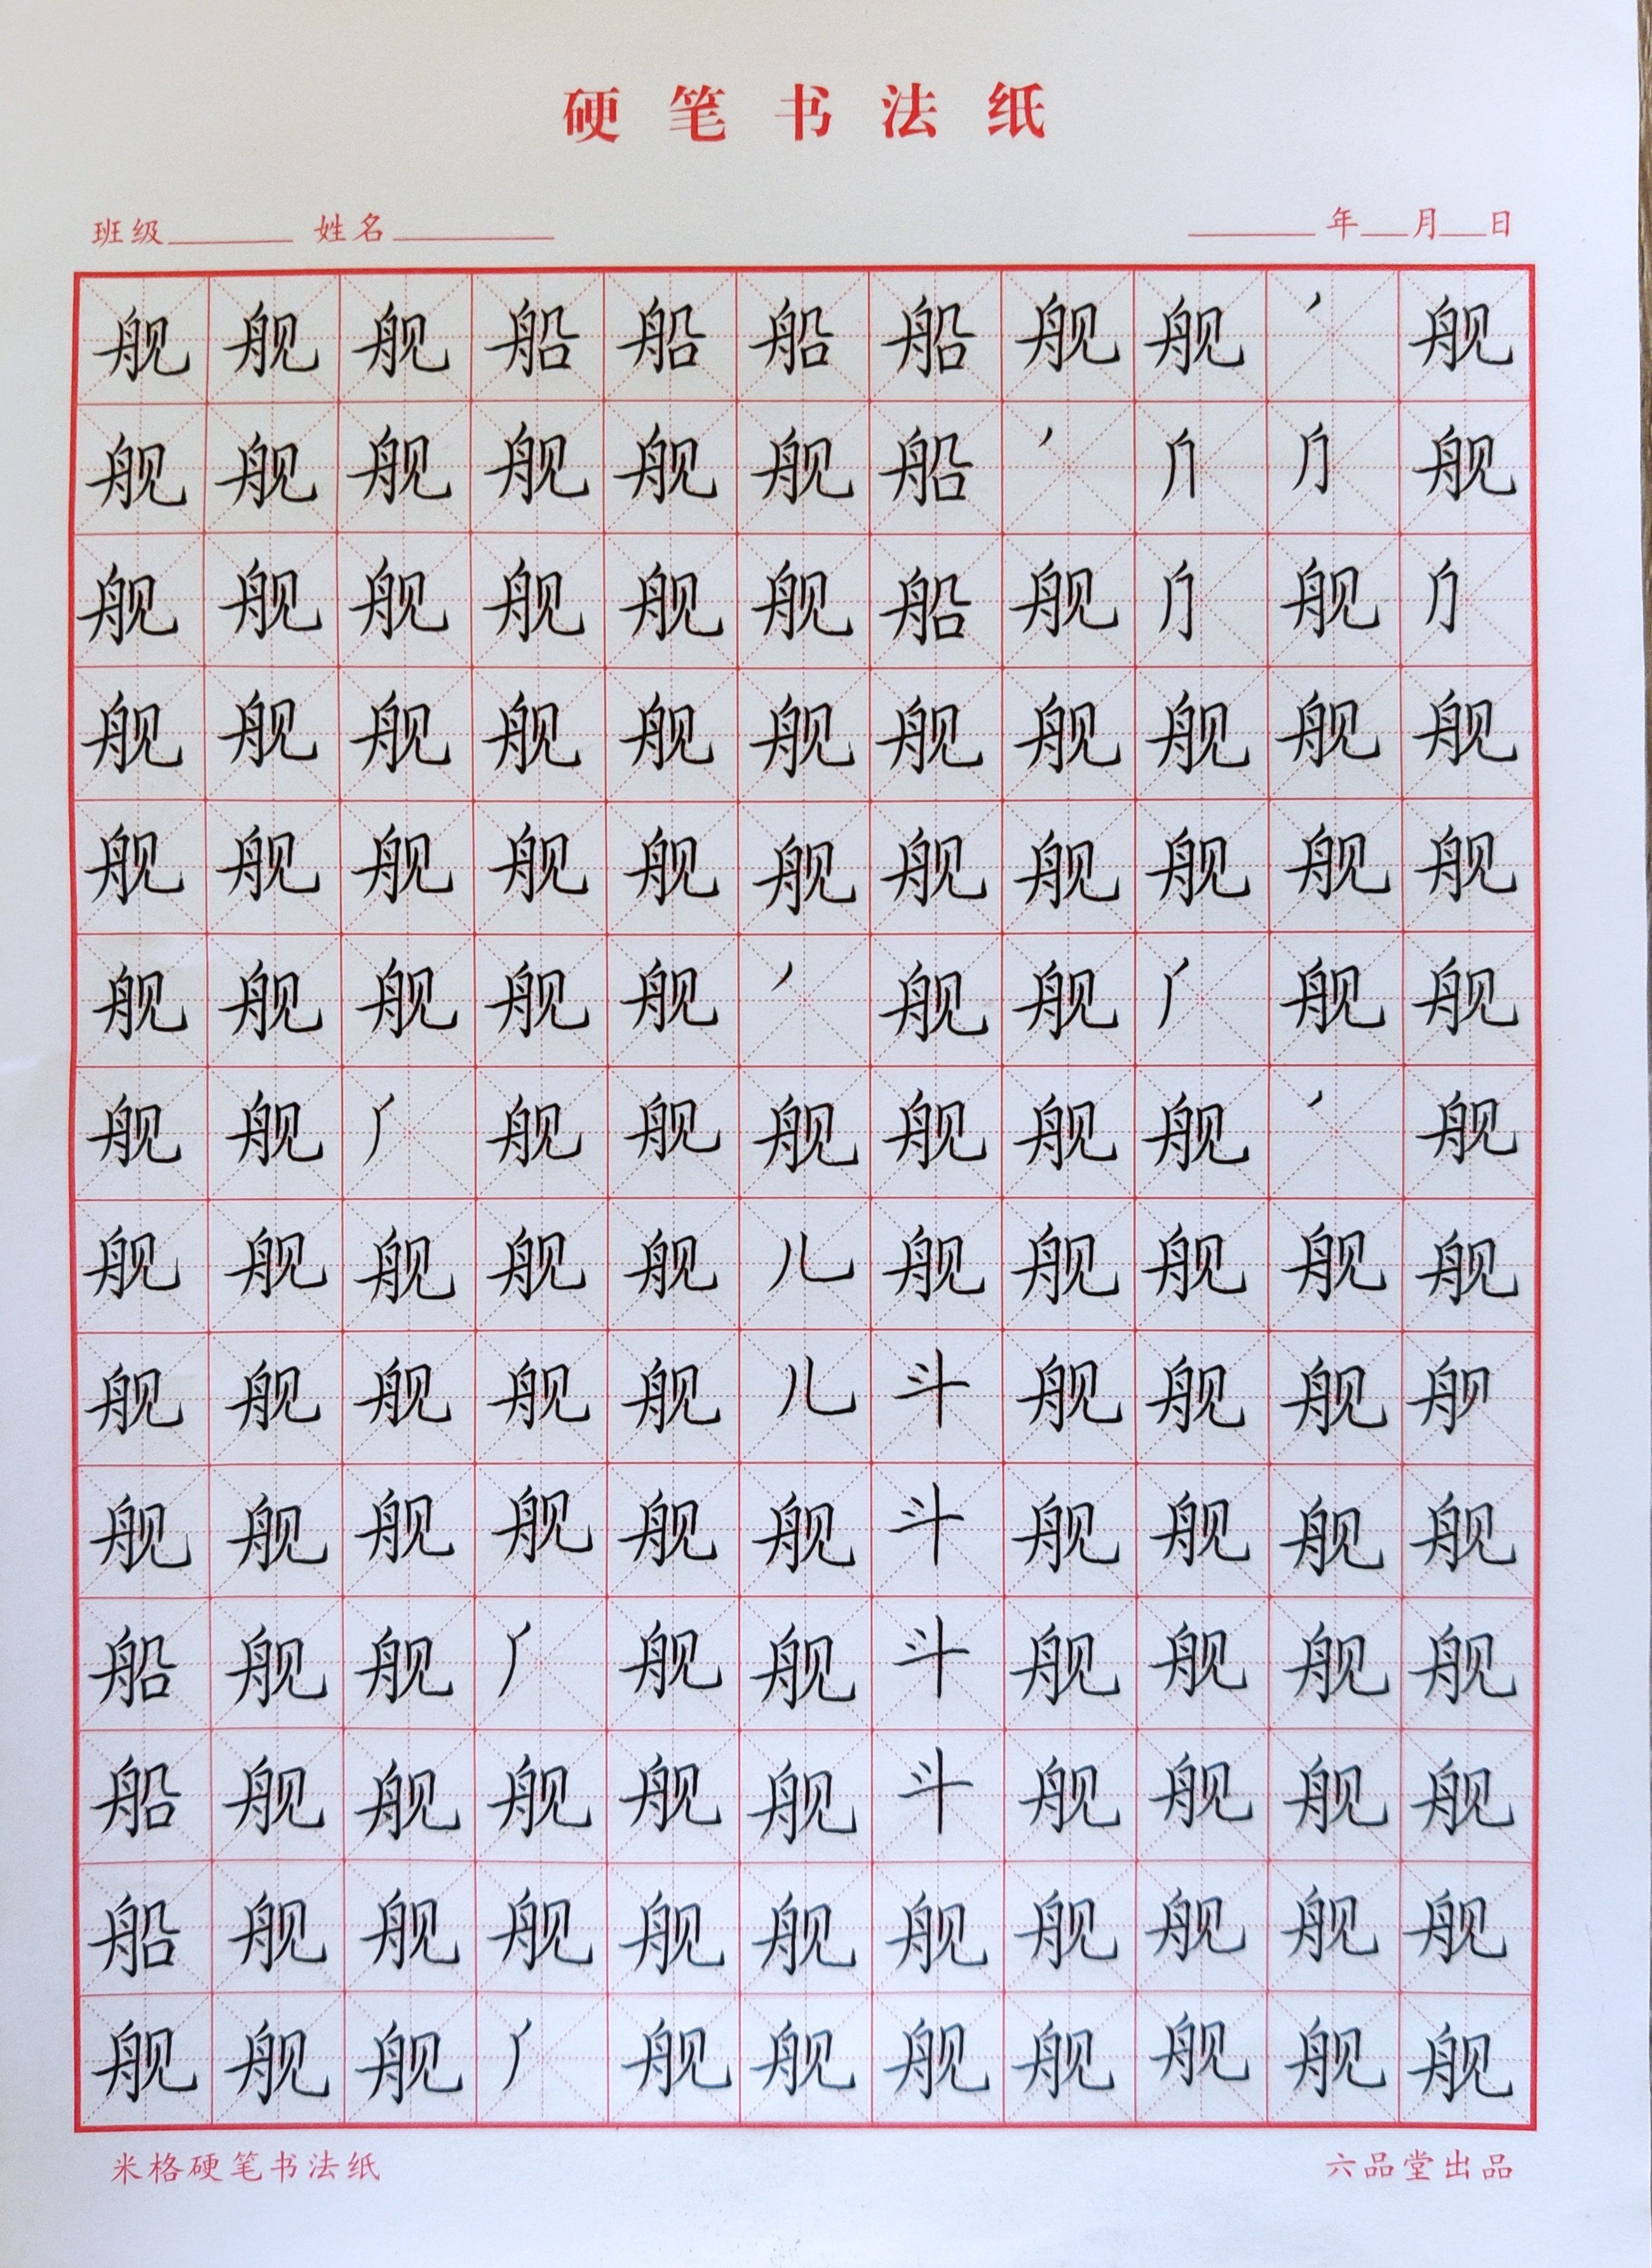 硬笔书法纸
班级 姓名 年 月 日
舰舰舰船船船船舰舰舰
舰舰舰舰舰舰船舰
舰舰舰舰舰舰船舰舰
舰舰舰舰舰舰舰舰舰舰舰
舰舰舰舰舰舰舰舰舰舰舰
舰舰舰舰舰舰舰舰舰
舰舰舰舰舰舰舰舰舰
舰舰舰舰舰儿舰舰舰舰舰
舰舰舰舰舰儿斗舰舰舰
舰舰舰舰舰舰斗舰舰舰舰
船舰舰舰舰斗舰舰舰舰
船舰舰舰舰舰斗舰舰舰舰
船舰舰舰舰舰舰舰舰舰舰
舰舰舰舰舰舰舰舰舰舰
米格硬笔书法纸 六品堂出品